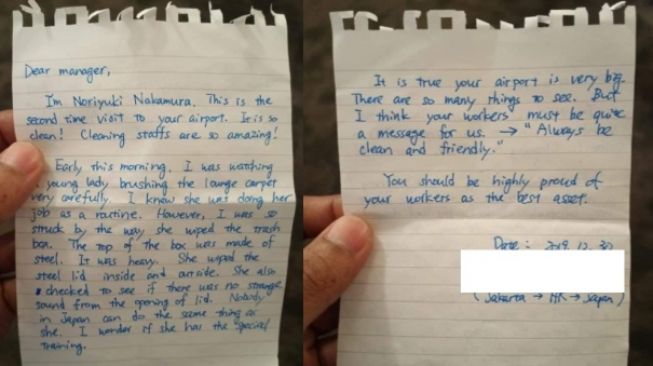 Dear manager,
I'm Noriyuki Nakamura. This is the
second time visit to your airport. It is so
clean! Cleaning staffs are so amazing!
Early this morning, I was watching
a young lady brushing the lounge carpet
very carefully. I knew she was doing her
job as a routine. However, I was so
struck by the way she wiped the trash
box. The top of the box was made of
steel. It was heavy. She wiped the
steel lid inside and outside. She also
checked to see if there was no strange
sound from the opening of lid. Nobody
in Japan can do the same thing as
she. I wonder if she has the special
training.
It is true your airport is very big.
There are so many things to see. But
I think your workers must be quite
a message for us. → "Always be
clean and friendly."
You should be highly proud of
your workers as the best asset.
Date: 2019. 12. 30
(Jakarta → HK → Japan)